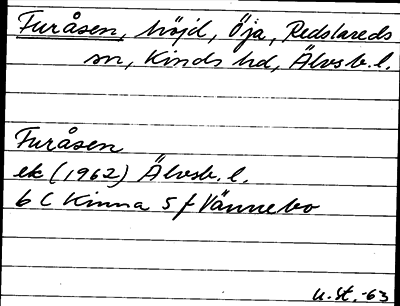 Furåsen, höjd, Öja, Redslareds
sn, Kinds hd, Älvsb. l.
Furåsen
ek (1962) Älvsb. l.
6 C Kinna 5 f Vännebo
U. St. -63